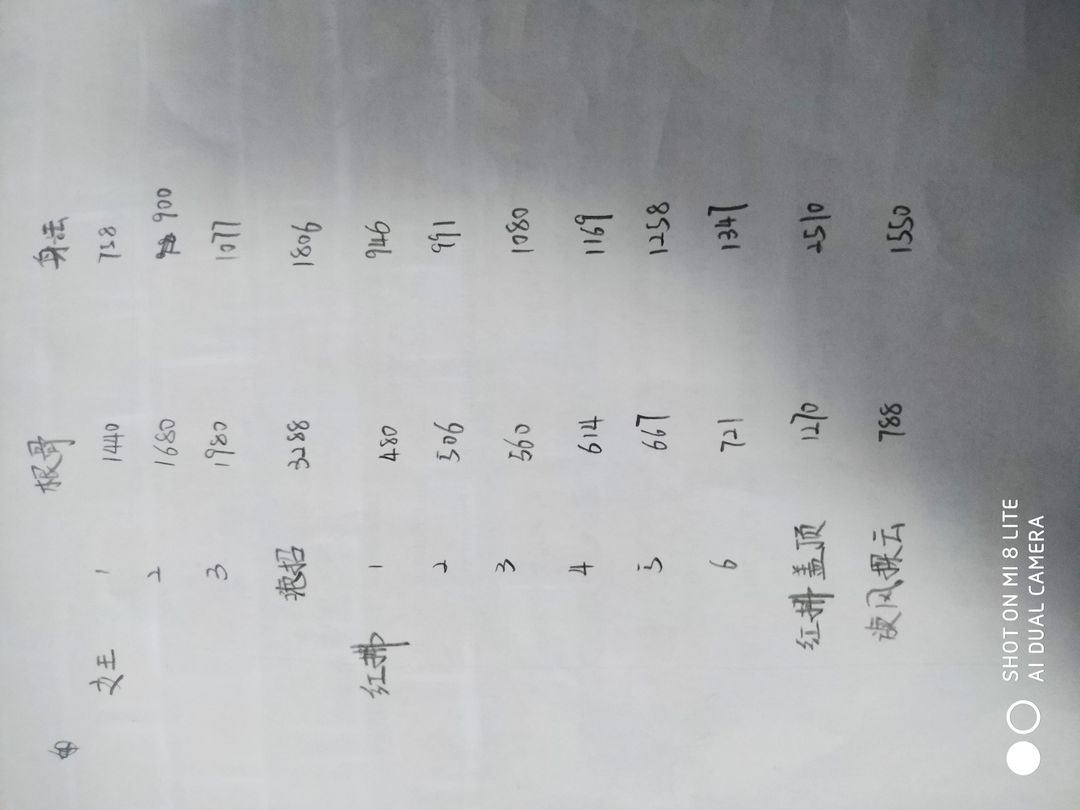 根骨 身法
女王 1 1440 758
2 1680 900
3 1980 1077
绝招 3288 1806
红拂 1 480 946
2 506 991
3 560 1080
4 614 1169
5 667 1258
6 721 1347
红拂盖顶 1270 2510
旋风掠云 788 1550
SHOT ON MI 8 LITE
AI DUAL CAMERA